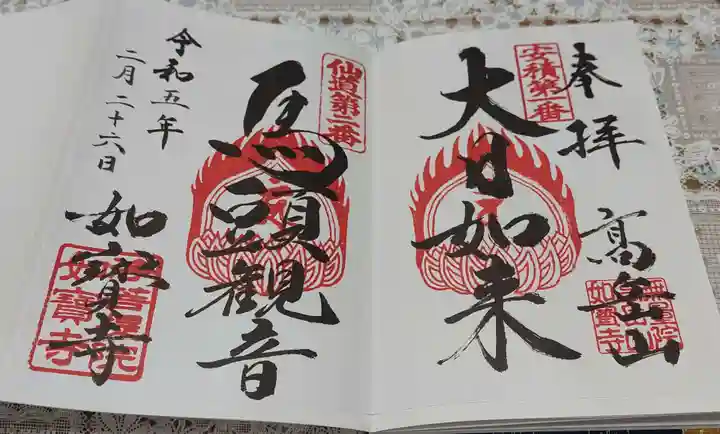 奉拝
高岳山
安積第一番
大日如来
仙道第二番
馬頭観音
令和五年
二月二十六日
如寶寺